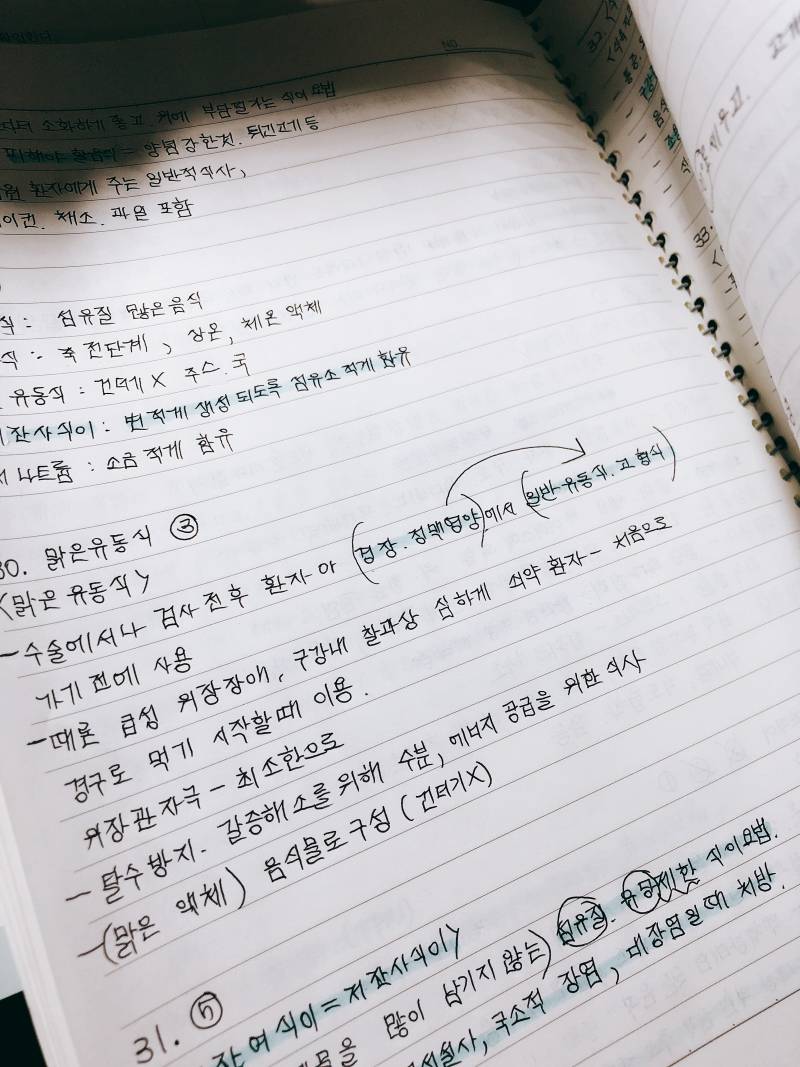 NO.
소화하기 좋고 위에 부담될지는 식이요법
피해야 할음식 = 양념강한것. 튀긴고기 등
환자에게 주는 일반적식사,
채소. 과일 포함
식 : 섬유질 많은음식
식 : 죽 전단계, 상온, 체온 액체
유동식 : 건더기 X 주스. 국
잔사식이 : 변 적게 생성 되도록 섬유소 적게 함유
나트륨 : 소금 적게 함유
30. 맑은유동식 ③
<맑은 유동식>
- 수술에서나 검사 전후 환자아 (경장. 정맥영양)에서 (일반유동식. 고형식)
가기 전에 사용
- 때론 급성 위장장애, 구강내 찰과상 심하게 쇠약 환자 - 처음으로
경구로 먹기 시작할때 이용.
위장관자극 - 최소한으로
- 탈수방지. 갈증해소를 위해 수분, 에너지 공급을 위한 식사
- (맑은 액체) 음식물로구성 (건더기X)
31. ⑤
잔여식이 = 저잔사식이>
많이 남기지 않는) 섬유질. 유당제한 식이요법.
설사, 국소적 장염, 대장염일때 처방.
33.